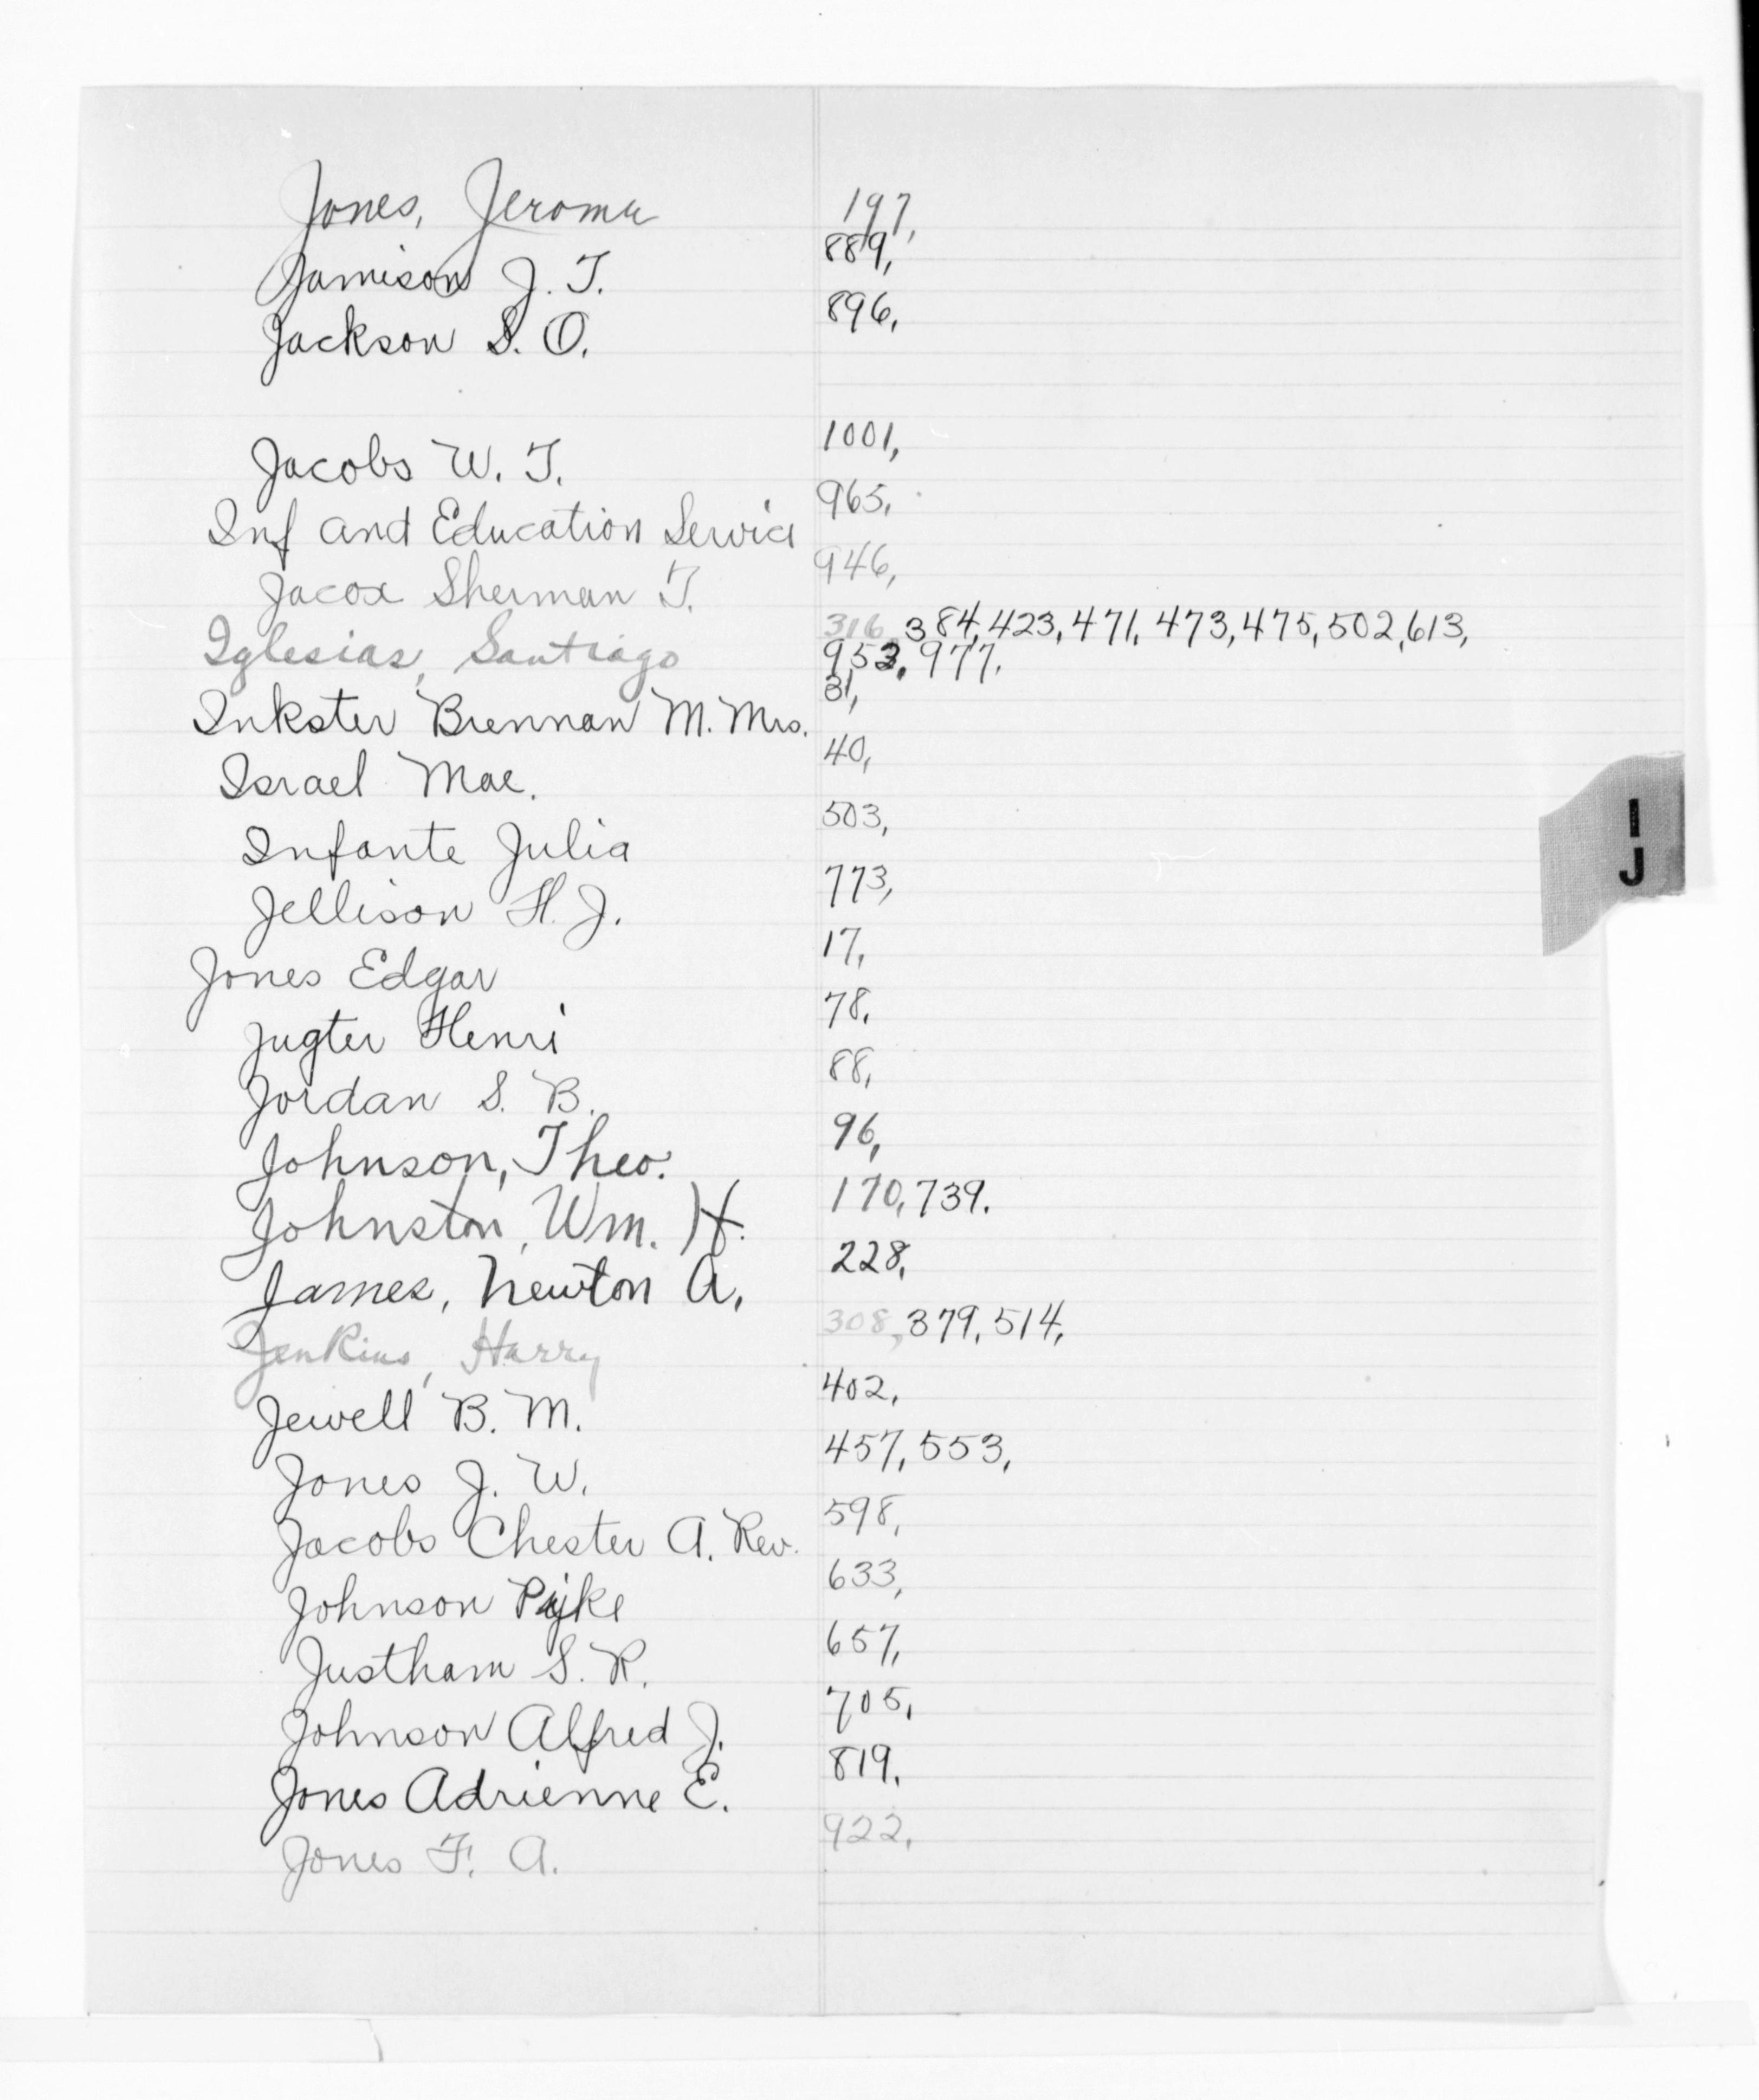 Jones, Jerome 197,
Jamison J. T. 889,
Jackson S. O. 896,
Jacobs W. T. 1001,
Inf and Education Service 965,
Jacox Sherman T. 946,
Iglesias, Santiago 316, 384, 423, 471, 473, 475, 502, 613,
953, 977.
Inkster Brennan M. Mrs. 31,
Israel Mae. 40,
Infante Julia 503,
Jellison H. J. 773,
Jones Edgar 17,
Jugter Henri 78.
Jordan S. B. 88,
Johnson, Theo. 96,
Johnston, Wm. H. 170, 739.
James, Newton A. 228,
Jenkins, Harry 308, 379, 514,
Jewell B. M. 402,
Jones J. W. 457, 553,
Jacobs Chester A. Rev. 598,
Johnson 633,
Justham S. R. 657,
Johnson Alfred J. 705,
Jones Adrienne E. 819,
Jones F. A. 922,
I
J